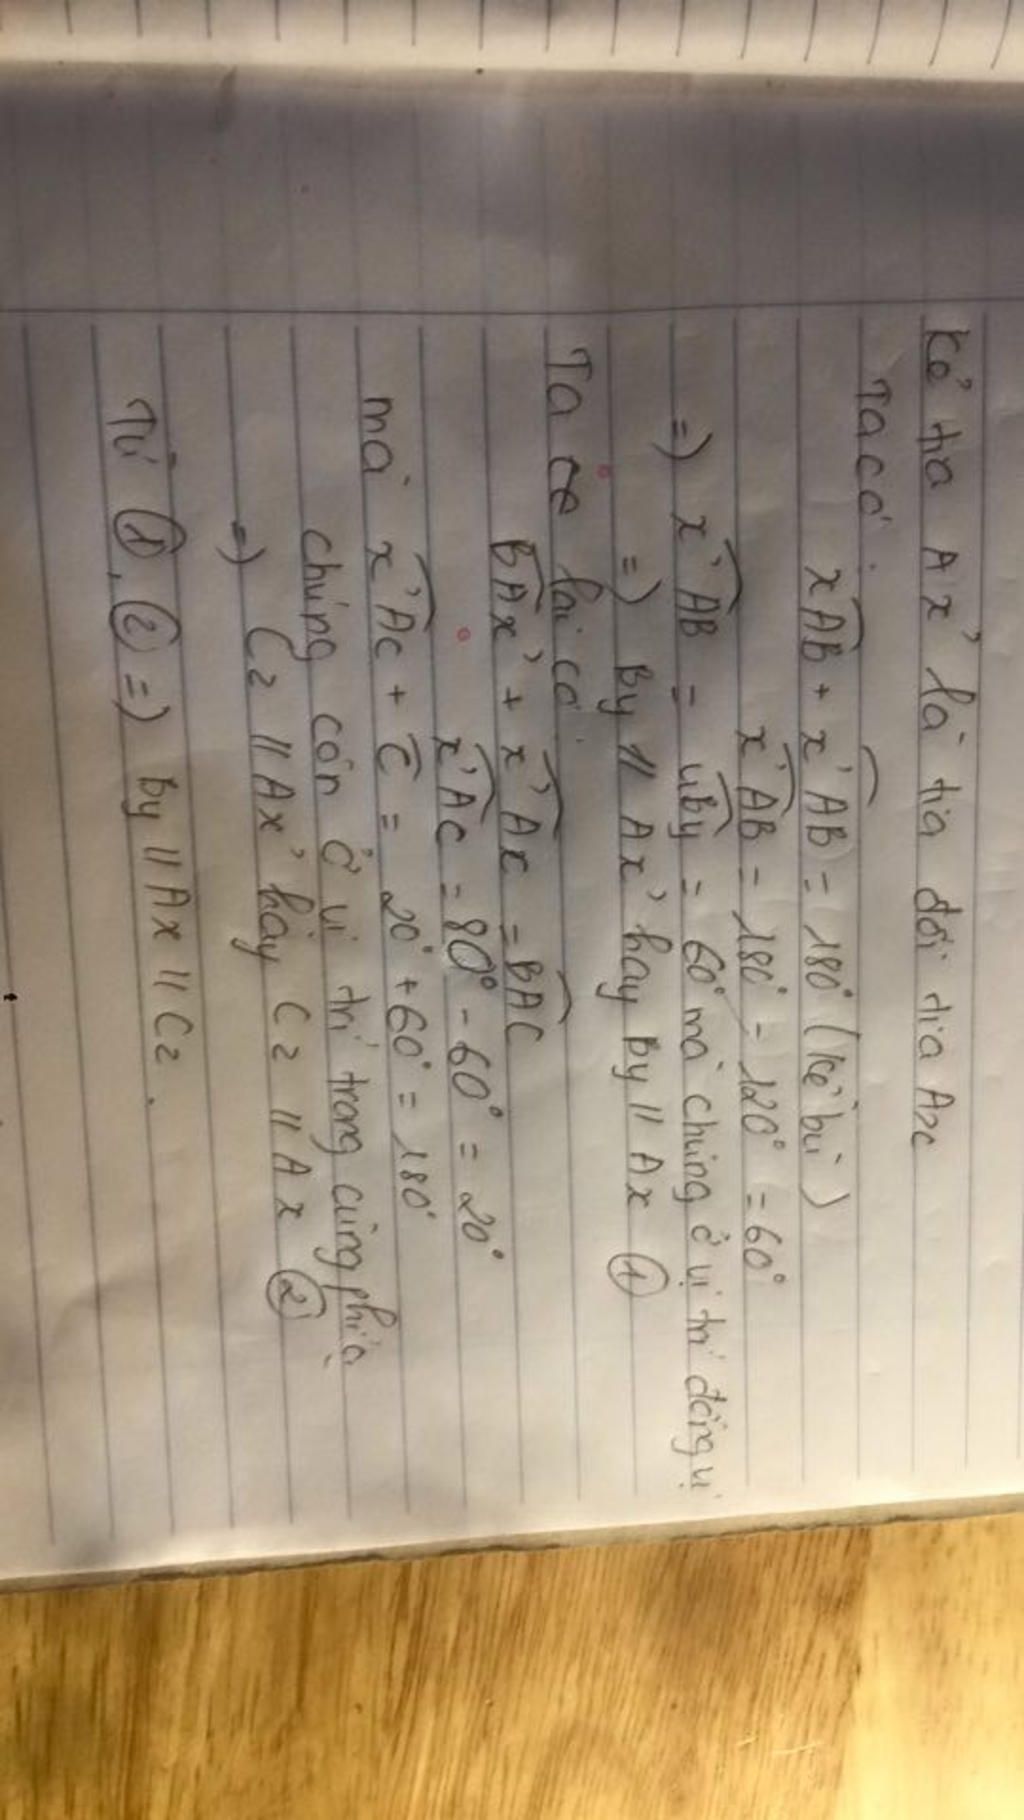 Kẻ tia Ax' là tia đối tia Ax
Ta có:
xAB + x'AB = 180° (kề bù)
x'AB = 180° - 120° = 60°
=) x'AB = uBy = 60° mà chúng ở vị trí đồng vị
=) By // Ax' hay By // Ax ①
Ta lại có:
BAx' + x'Ac = BAC
x'AC = 80° - 60° = 20°
mà x'Ac + C = 20° + 60° = 180°
chúng còn ở vị trí trong cùng phía
=) Cz // Ax' hay Cz // Ax ②
Từ ①, ② =) By // Ax // Cz.